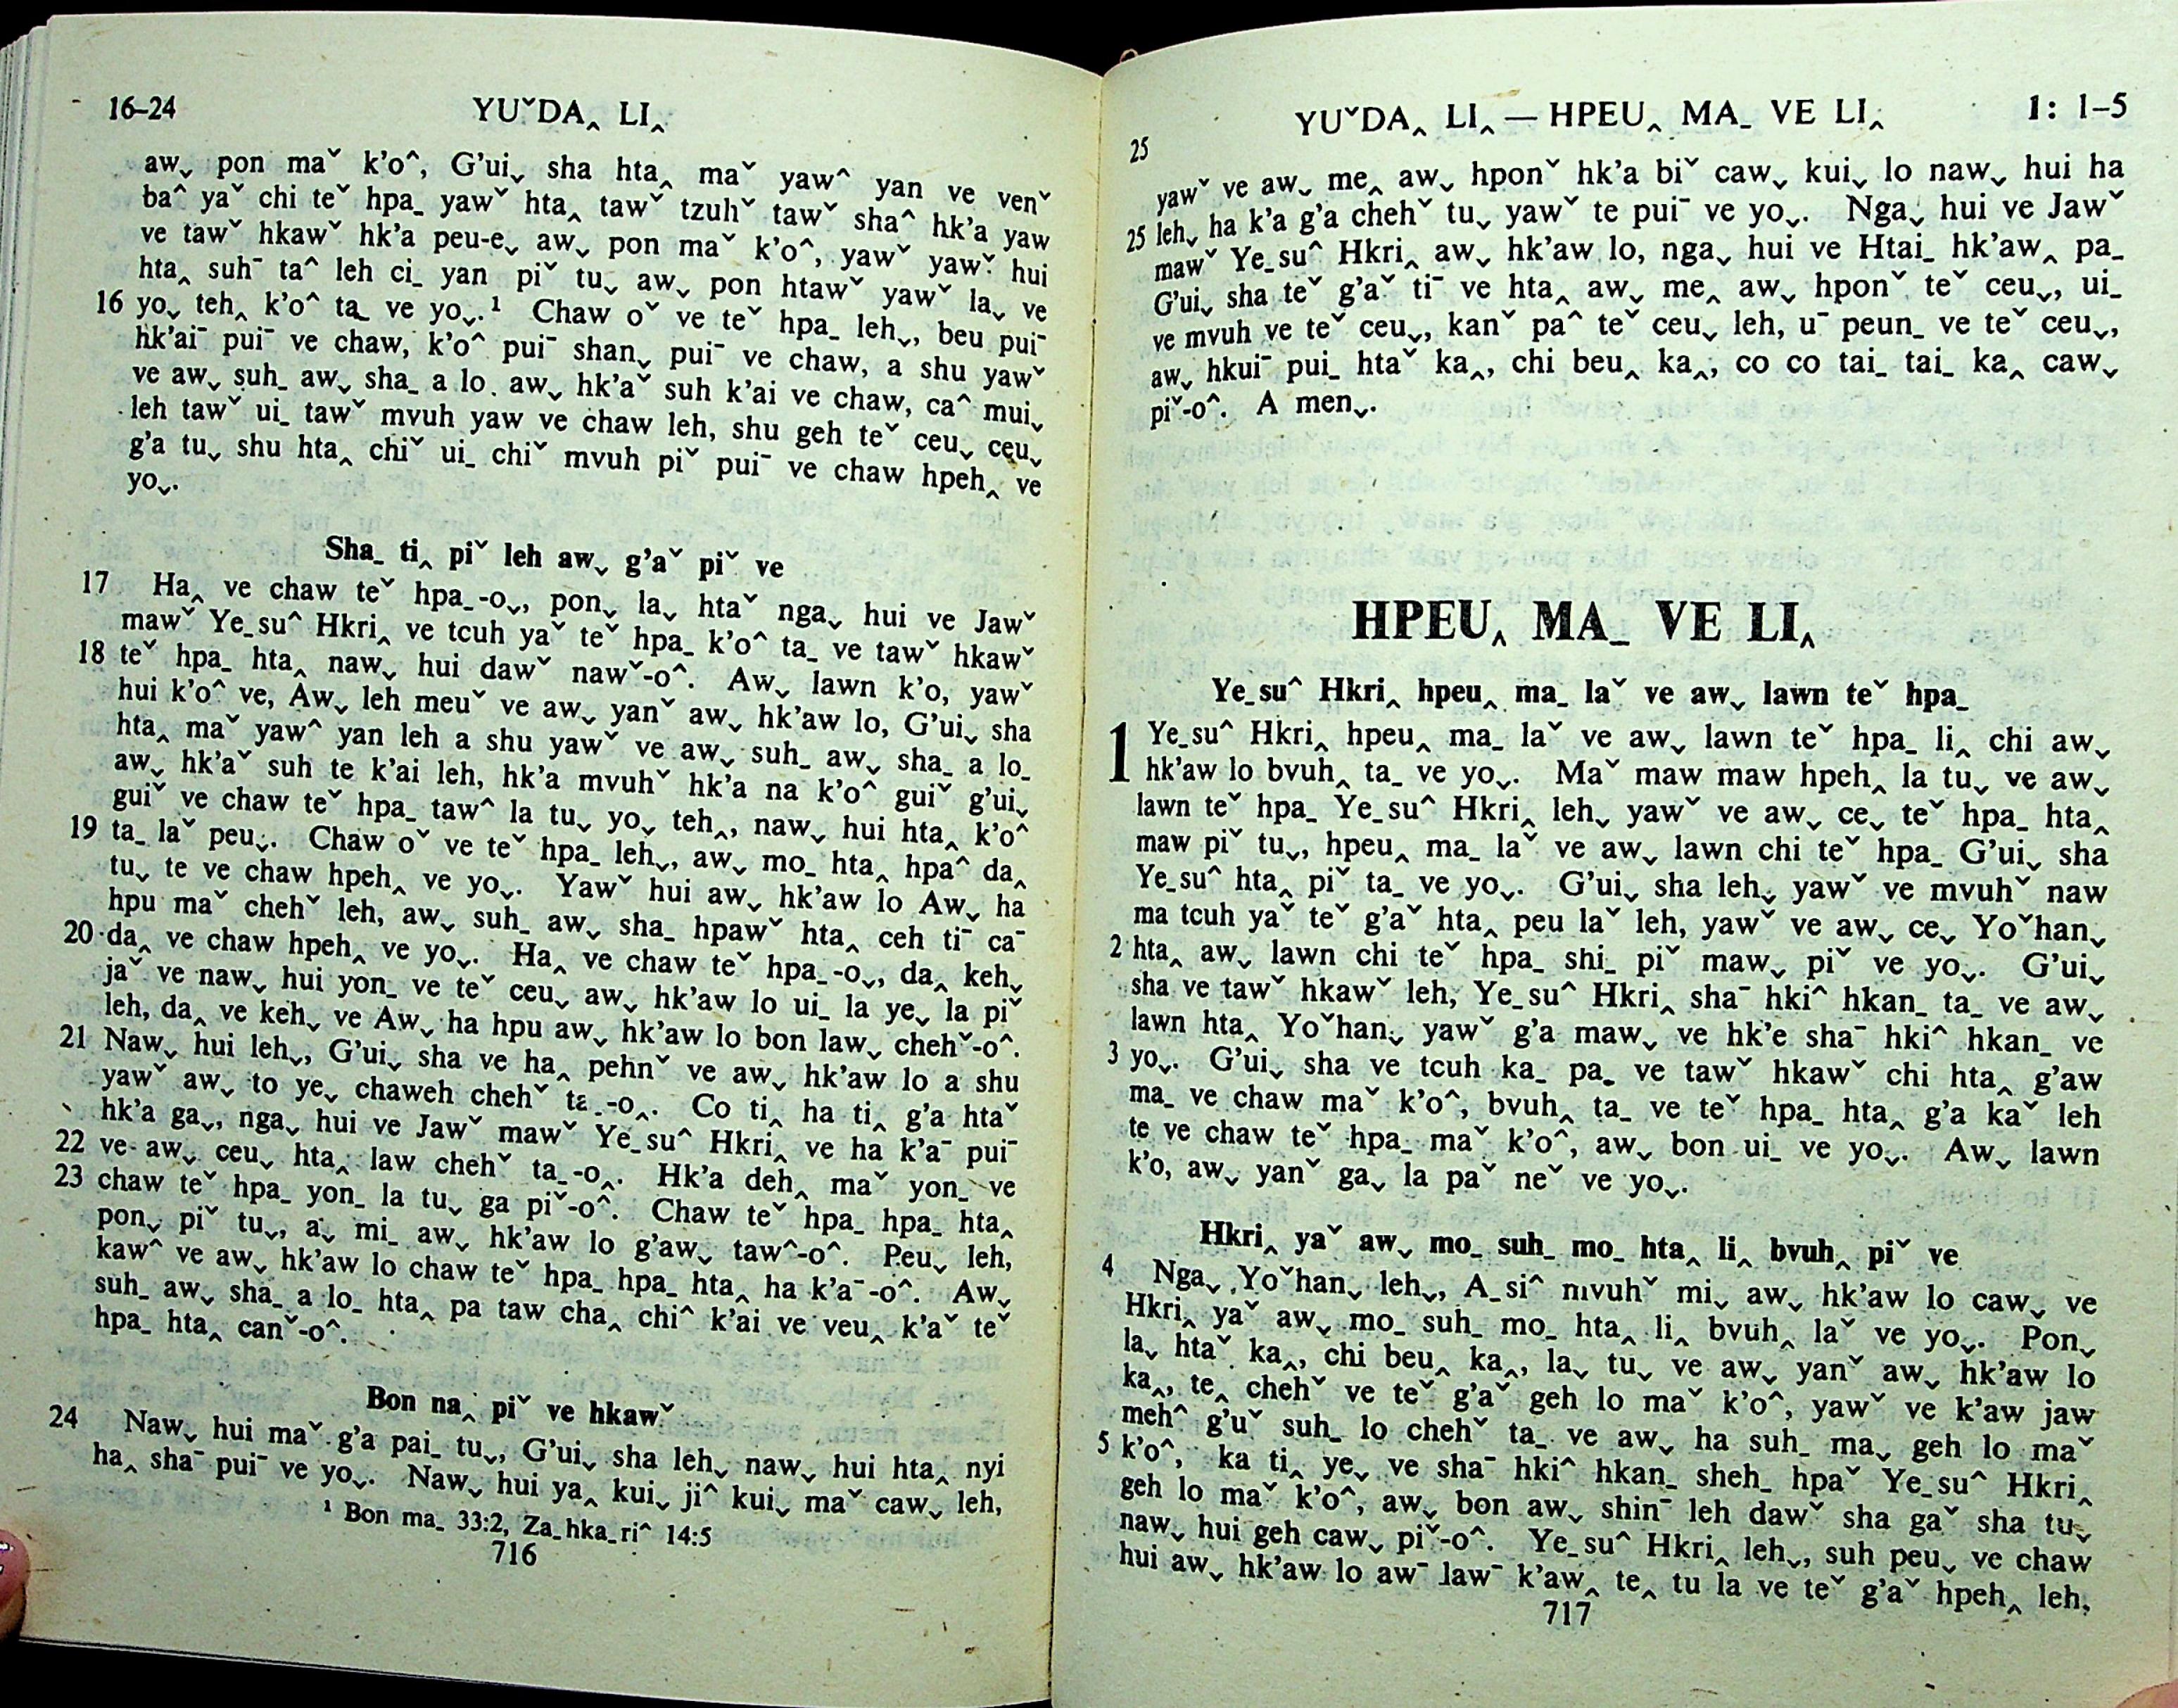 16–24
YUˇDA‸ LI‸
aw⌄ pon maˇ k’o^, G’ui⌄ sha hta‸ maˇ yaw^ yan ve venˇ
ba^ yaˇ chi teˇ hpa_ yawˇ hta‸ tawˇ tzuhˇ tawˇ sha^ hk’a yaw
ve tawˇ hkawˇ hk’a peu-e⌄ aw⌄ pon maˇ k’o^, yawˇ yawˇ hui
hta‸ suh¯ ta^ leh ci_ yan piˇ tu⌄ aw⌄ pon htawˇ yawˇ la⌄ ve
16 yo⌄ teh‸ k’o^ ta_ ve yo⌄.¹ Chaw oˇ ve teˇ hpa_ leh⌄, beu pui¯
hk’ai¯ pui¯ ve chaw, k’o^ pui¯ shan⌄ pui¯ ve chaw, a shu yawˇ
ve aw⌄ suh_ aw⌄ sha_ a lo_ aw⌄ hk’aˇ suh k’ai ve chaw, ca^ mui⌄
leh tawˇ ui_ tawˇ mvuh yaw ve chaw leh, shu geh teˇ ceu⌄ ceu⌄
g’a tu⌄ shu hta‸ chiˇ ui_ chiˇ mvuh piˇ pui¯ ve chaw hpeh‸ ve
yo⌄.
Sha_ ti‸ piˇ leh aw⌄ g’aˇ piˇ ve
17 Ha‸ ve chaw teˇ hpa_-o⌄, pon⌄ la⌄ htaˇ nga⌄ hui ve Jawˇ
mawˇ Ye_su^ Hkri‸ ve tcuh yaˇ teˇ hpa_ k’o^ ta_ ve tawˇ hkawˇ
18 teˇ hpa_ hta‸ naw⌄ hui dawˇ nawˇ-o^. Aw⌄ lawn k’o, yawˇ
hui k’o^ ve, Aw⌄ leh meuˇ ve aw⌄ yanˇ aw⌄ hk’aw lo, G’ui⌄ sha
hta‸ maˇ yaw^ yan leh a shu yawˇ ve aw⌄ suh_ aw⌄ sha_ a lo_
aw⌄ hk’aˇ suh te k’ai leh, hk’a mvuhˇ hk’a na k’o^ guiˇ g’ui⌄
guiˇ ve chaw teˇ hpa_ taw^ la tu⌄ yo⌄ teh‸, naw⌄ hui hta‸ k’o^
19 ta_ laˇ peu⌄. Chaw oˇ ve teˇ hpa_ leh⌄, aw⌄ mo_ hta‸ hpa^ da‸
tu⌄ te ve chaw hpeh‸ ve yo⌄. Yawˇ hui aw⌄ hk’aw lo Aw⌄ ha
hpu maˇ chehˇ leh, aw⌄ suh_ aw⌄ sha_ hpawˇ hta‸ ceh ti¯ ca¯
20 da‸ ve chaw hpeh‸ ve yo⌄. Ha‸ ve chaw teˇ hpa_-o⌄, da‸ keh⌄
jaˇ ve naw⌄ hui yon_ ve teˇ ceu⌄ aw⌄ hk’aw lo ui_ la ye⌄ la piˇ
leh, da‸ ve keh⌄ ve Aw⌄ ha hpu aw⌄ hk’aw lo bon law⌄ chehˇ-o^.
21 Naw⌄ hui leh⌄, G’ui⌄ sha ve ha‸ pehnˇ ve aw⌄ hk’aw lo a shu
yawˇ aw⌄ to ye⌄ chaweh chehˇ ta_-o‸. Co ti‸ ha ti‸ g’a htaˇ
hk’a ga⌄, nga⌄ hui ve Jawˇ mawˇ Ye_su^ Hkri‸ ve ha k’a¯ pui¯
22 ve aw⌄ ceu⌄ hta‸ law chehˇ ta_-o‸. Hk’a deh‸ maˇ yon_ ve
23 chaw teˇ hpa_ yon_ la tu⌄ ga piˇ-o^. Chaw teˇ hpa_ hpa_ hta‸
pon⌄ piˇ tu⌄, a⌄ mi_ aw⌄ hk’aw lo g’aw⌄ taw^-o^. Peu⌄ leh,
kaw^ ve aw⌄ hk’aw lo chaw teˇ hpa_ hpa_ hta‸ ha k’a¯-o^. Aw⌄
suh_ aw⌄ sha_ a lo_ hta‸ pa taw cha‸ chi^ k’ai ve veu‸ k’aˇ teˇ
hpa_ hta‸ canˇ-o^.
Bon na‸ piˇ ve hkawˇ
24 Naw⌄ hui maˇ g’a pai_ tu⌄, G’ui⌄ sha leh⌄ naw⌄ hui hta‸ nyi
ha‸ sha¯ pui¯ ve yo⌄. Naw⌄ hui ya‸ kui⌄ ji^ kui⌄ maˇ caw⌄ leh,
¹ Bon ma_ 33:2, Za_hka_ri^ 14:5
716
YUˇDA‸ LI‸ — HPEU‸ MA_ VE LI‸
1: 1–5
25
yawˇ ve aw⌄ me‸ aw⌄ hponˇ hk’a biˇ caw⌄ kui⌄ lo naw⌄ hui ha
25 leh⌄ ha k’a g’a chehˇ tu⌄ yawˇ te pui¯ ve yo⌄. Nga⌄ hui ve Jawˇ
mawˇ Ye_su^ Hkri‸ aw⌄ hk’aw lo, nga⌄ hui ve Htai_ hk’aw‸ pa_
G’ui⌄ sha teˇ g’aˇ ti¯ ve hta‸ aw⌄ me‸ aw⌄ hponˇ teˇ ceu⌄, ui_
ve mvuh ve teˇ ceu⌄, kanˇ pa^ teˇ ceu⌄ leh, u¯ peun_ ve teˇ ceu⌄,
aw⌄ hkui¯ pui_ htaˇ ka‸, chi beu‸ ka‸, co co tai_ tai_ ka‸ caw⌄
piˇ-o^. A men⌄.
HPEU‸ MA_ VE LI‸
Ye_su^ Hkri‸ hpeu‸ ma_ laˇ ve aw⌄ lawn teˇ hpa_
1 Ye_su^ Hkri‸ hpeu‸ ma_ laˇ ve aw⌄ lawn teˇ hpa_ li‸ chi aw⌄
hk’aw lo bvuh‸ ta_ ve yo⌄. Maˇ maw maw hpeh‸ la tu⌄ ve aw⌄
lawn teˇ hpa_ Ye_su^ Hkri‸ leh⌄ yawˇ ve aw⌄ ce⌄ teˇ hpa_ hta‸
maw piˇ tu⌄, hpeu‸ ma_ laˇ ve aw⌄ lawn chi teˇ hpa_ G’ui⌄ sha
Ye_su^ hta‸ piˇ ta_ ve yo⌄. G’ui⌄ sha leh⌄ yawˇ ve mvuhˇ naw
ma tcuh yaˇ teˇ g’aˇ hta‸ peu laˇ leh, yawˇ ve aw⌄ ce⌄ Yoˇhan⌄
2 hta‸ aw⌄ lawn chi teˇ hpa_ shi_ piˇ maw⌄ piˇ ve yo⌄. G’ui⌄
sha ve tawˇ hkawˇ leh, Ye_su^ Hkri‸ sha¯ hki^ hkan_ ta_ ve aw⌄
lawn hta‸ Yoˇhan⌄ yawˇ g’a maw⌄ ve hk’e sha¯ hki^ hkan_ ve
3 yo⌄. G’ui⌄ sha ve tcuh ka_ pa_ ve tawˇ hkawˇ chi hta‸ g’aw
ma_ ve chaw maˇ k’o^, bvuh‸ ta_ ve teˇ hpa_ hta‸ g’a kaˇ leh
te ve chaw teˇ hpa_ maˇ k’o^, aw⌄ bon ui_ ve yo⌄. Aw⌄ lawn
k’o, aw⌄ yanˇ ga⌄ la paˇ neˇ ve yo⌄.
Hkri‸ yaˇ aw⌄ mo_ suh_ mo_ hta‸ li‸ bvuh‸ piˇ ve
4 Nga⌄ Yoˇhan⌄ leh⌄, A_si^ mvuhˇ mi⌄ aw⌄ hk’aw lo caw⌄ ve
Hkri‸ yaˇ aw⌄ mo_ suh_ mo_ hta‸ li‸ bvuh‸ laˇ ve yo⌄. Pon⌄
la⌄ htaˇ ka‸, chi beu‸ ka‸, la⌄ tu⌄ ve aw⌄ yanˇ aw⌄ hk’aw lo
ka‸, te‸ chehˇ ve teˇ g’aˇ geh lo maˇ k’o^, yawˇ ve k’aw jaw
meh^ g’uˇ suh_ lo chehˇ ta_ ve aw⌄ ha suh_ ma⌄ geh lo maˇ
5 k’o^, ka ti‸ ye⌄ ve sha¯ hki^ hkan_ sheh_ hpaˇ Ye_su^ Hkri‸
geh lo maˇ k’o^, aw⌄ bon aw⌄ shin¯ leh dawˇ sha gaˇ sha tu⌄
naw⌄ hui geh caw⌄ piˇ-o^. Ye_su^ Hkri‸ leh⌄, suh peu⌄ ve chaw
hui aw⌄ hk’aw lo aw¯ law¯ k’aw‸ te‸ tu la ve teˇ g’aˇ hpeh‸ leh,
717